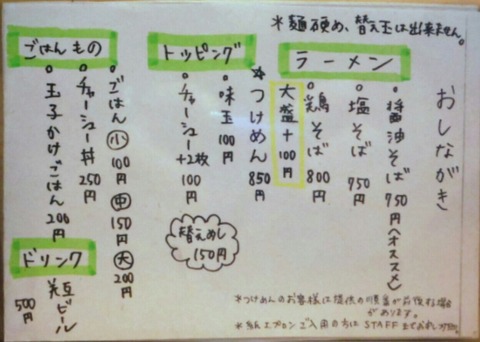 おしながき
＊麺硬め、替え玉は出来ません。
ラーメン
○醤油そば 750円(オススメ)
○塩そば 750円
○鶏そば 800円
大盛+100円
＊つけめん 850円
トッピング
○味玉 100円
○チャーシュー+2枚 100円
替えめし 150円
ごはんもの
○ごはん 小 100円 中 150円 大 200円
○チャーシュー丼 250円
○玉子かけごはん 200円
ドリンク
瓶ビール 500円
＊つけめんのお客様は提供の順番が前後する場合があります。
＊紙エプロンご入用の方はSTAFFまで